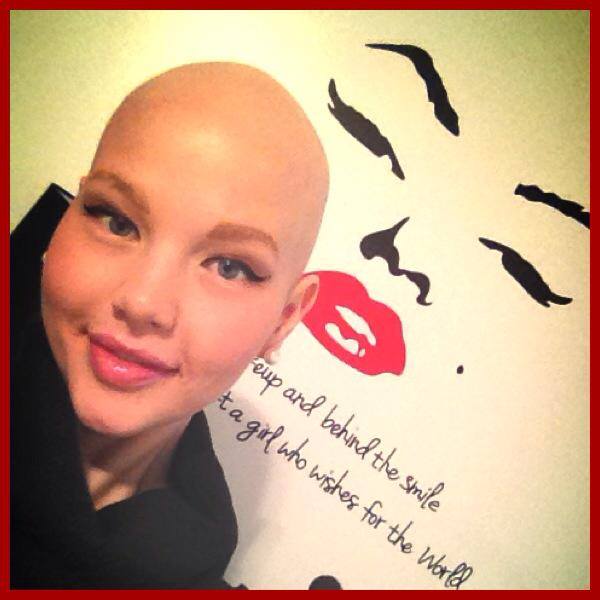 eup and behind the smile
t a girl who wishes for the World